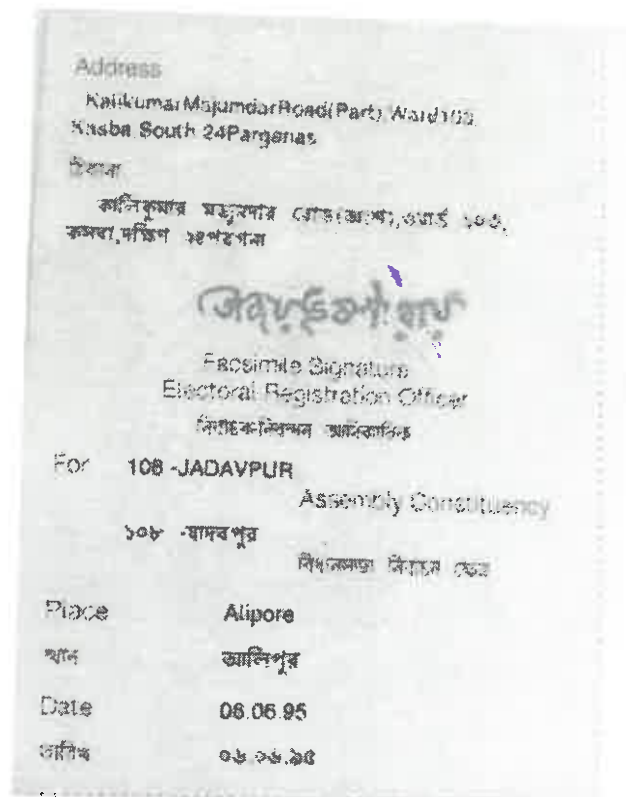 Address
KalikumarMajumdarRoad(Part), Ward
Kasba South 24Parganas
ঠিকানা
কালিকুমার মজুমদার রোড(অংশ),ওয়ার্ড
কসবা,দক্ষিণ ২৪পরগনা
Facsimile Signature
Electoral Registration Officer
নির্বাচক-নিবন্ধন আধিকারিক
For 108 -JADAVPUR
Assembly Constituency
১০৮ -যাদবপুর
বিধানসভা নির্বাচন ক্ষেত্র
Place Alipore
স্থান আলিপুর
Date 06.06.95
তারিখ ০৬.০৬.৯৫